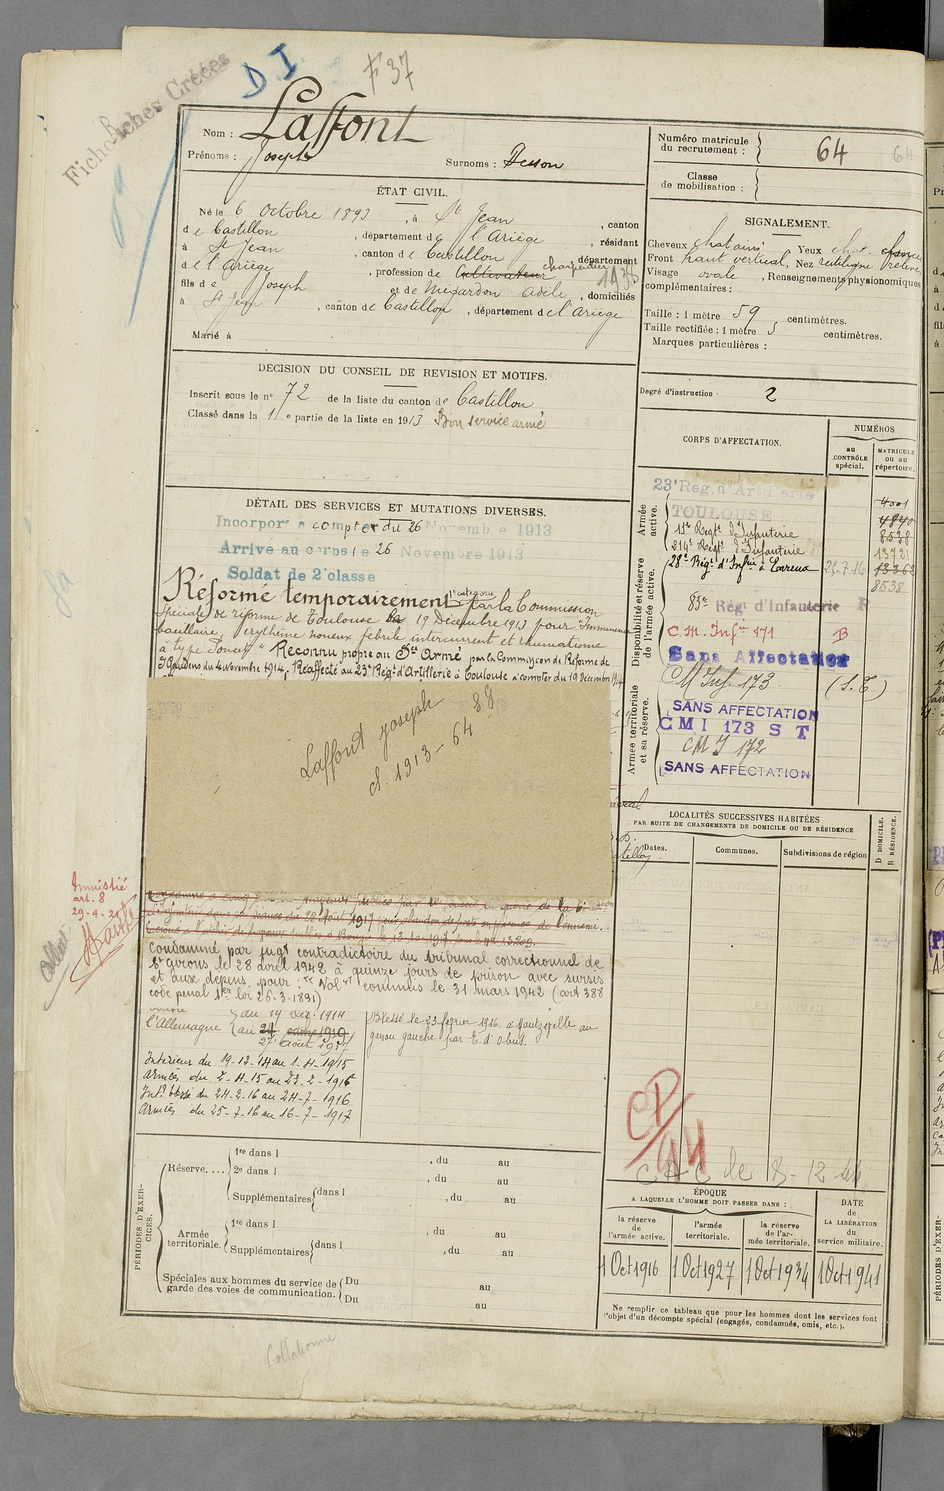 Fiches Créées
D I
F 37
Nom : Laffont
Prénoms : Joseph
Surnoms :
Numéro matricule du recrutement : 64
64
Classe de mobilisation :
ÉTAT CIVIL.
Né le 6 Octobre 1893, à St Jean, canton
de Castillon, département de l'Ariège, résidant
à St Jean, canton de Castillon, département
de l'Ariège, profession de Cultivateur charpentier
1938
fils de Joseph et de Mégardon Adèle, domiciliés
à St Jean, canton de Castillon, département de l'Ariège
Marié à
SIGNALEMENT.
Cheveux chatains Yeux chat.
Front haut vertical, Nez rectiligne
Visage ovale, Renseignements physionomiques
complémentaires :
Taille : 1 mètre 59 centimètres.
Taille rectifiée : 1 mètre centimètres.
Marques particulières :
DÉCISION DU CONSEIL DE REVISION ET MOTIFS.
Inscrit sous le n° 72 de la liste du canton de Castillon
Classé dans la 1e partie de la liste en 1913 Bon service armé
Degré d'instruction : 2
CORPS D'AFFECTATION.
NUMÉROS
au CONTRÔLE spécial.
MATRICULE ou au répertoire.
Armée active.
23e Rég. d'Artillerie
TOULOUSE
4001
4840
11e Régt d'Infanterie
8538
214e Régt d'Infanterie
13721
Disponibilité et réserve de l'armée active.
28e Régt d'Infrie à Evreux 25-7-16 13362
8538
83e Rég d'Infanterie F
C.M. Infie 171 B
Sans Affectation
C M Inf. 173 (S.T)
Armée territoriale et sa réserve.
SANS AFFECTATION
CMI 173 S T
CMI 172
SANS AFFECTATION
DÉTAIL DES SERVICES ET MUTATIONS DIVERSES.
Incorporé à compter du 26 Novembre 1913
Arrivé au corps le 26 Novembre 1913
Soldat de 2e classe
Réformé temporairement 1e catégorie par la Commission
spéciale de réforme de Toulouse le 19 Décembre 1913 pour "Imminence
bacillaire, erythème noueux fébrile intercurrent et rhumatisme
à type Poncet" Reconnu propre au Sce Armé par la Commission de Réforme de
St Gaudens du 4 novembre 1914, Réaffecté au 23e Régt d'Artillerie à Toulouse à compter du 19 décembre 1914
Laffont Joseph 89
cl. 1913 - 64
Amnistié
art. 8
29-4-21
Condamné à cinq travaux publics par le
dans sa séance du 28 Août 1917 pour abandon de poste en présence de l'ennemi.
Condamné par jugt contradictoire du tribunal correctionnel de
St Girons le 28 avril 1942 à quinze jours de prison avec sursis
et aux dépens pour : "Vol" commis le 31 mars 1942 (art 388
code penal 1er loi 26-3-1891)
contre
l'Allemagne
du 19 Déc. 1914
au
27 Août 1917
Blessé le 23 février 1916 à au
genou gauche par E. d'obus.
Intérieur du 19-12-14 au 1-4-1915
Armées du 2-4-15 au 23-2-1916
Int. blessé du 24-2-16 au 24-7-1916
Armées du 25-7-16 au 16-7-1917
LOCALITÉS SUCCESSIVES HABITÉES
PAR SUITE DE CHANGEMENTS DE DOMICILE OU DE RÉSIDENCE
Dates.
Communes.
Subdivisions de région
D DOMICILE. R RÉSIDENCE.
CD/44
CAC le 8-12-44
PÉRIODES D'EXERCICES.
Réserve....
1re dans l , du au
2e dans l , du au
Supplémentaires dans l , du au
Armée territoriale.
1re dans l , du au
Supplémentaires dans l , du au
Spéciales aux hommes du service de garde des voies de communication.
Du au
Du au
ÉPOQUE
A LAQUELLE L'HOMME DOIT PASSER DANS :
la réserve de l'armée active.
l'armée territoriale.
la réserve de l'armée territoriale.
DATE de LA LIBÉRATION du service militaire.
1 Oct 1916
1 Oct 1927
1 Oct 1934
1 Oct 1941
Ne remplir ce tableau que pour les hommes dont les services font
l'objet d'un décompte spécial (engagés, condamnés, omis, etc.).
Collationné